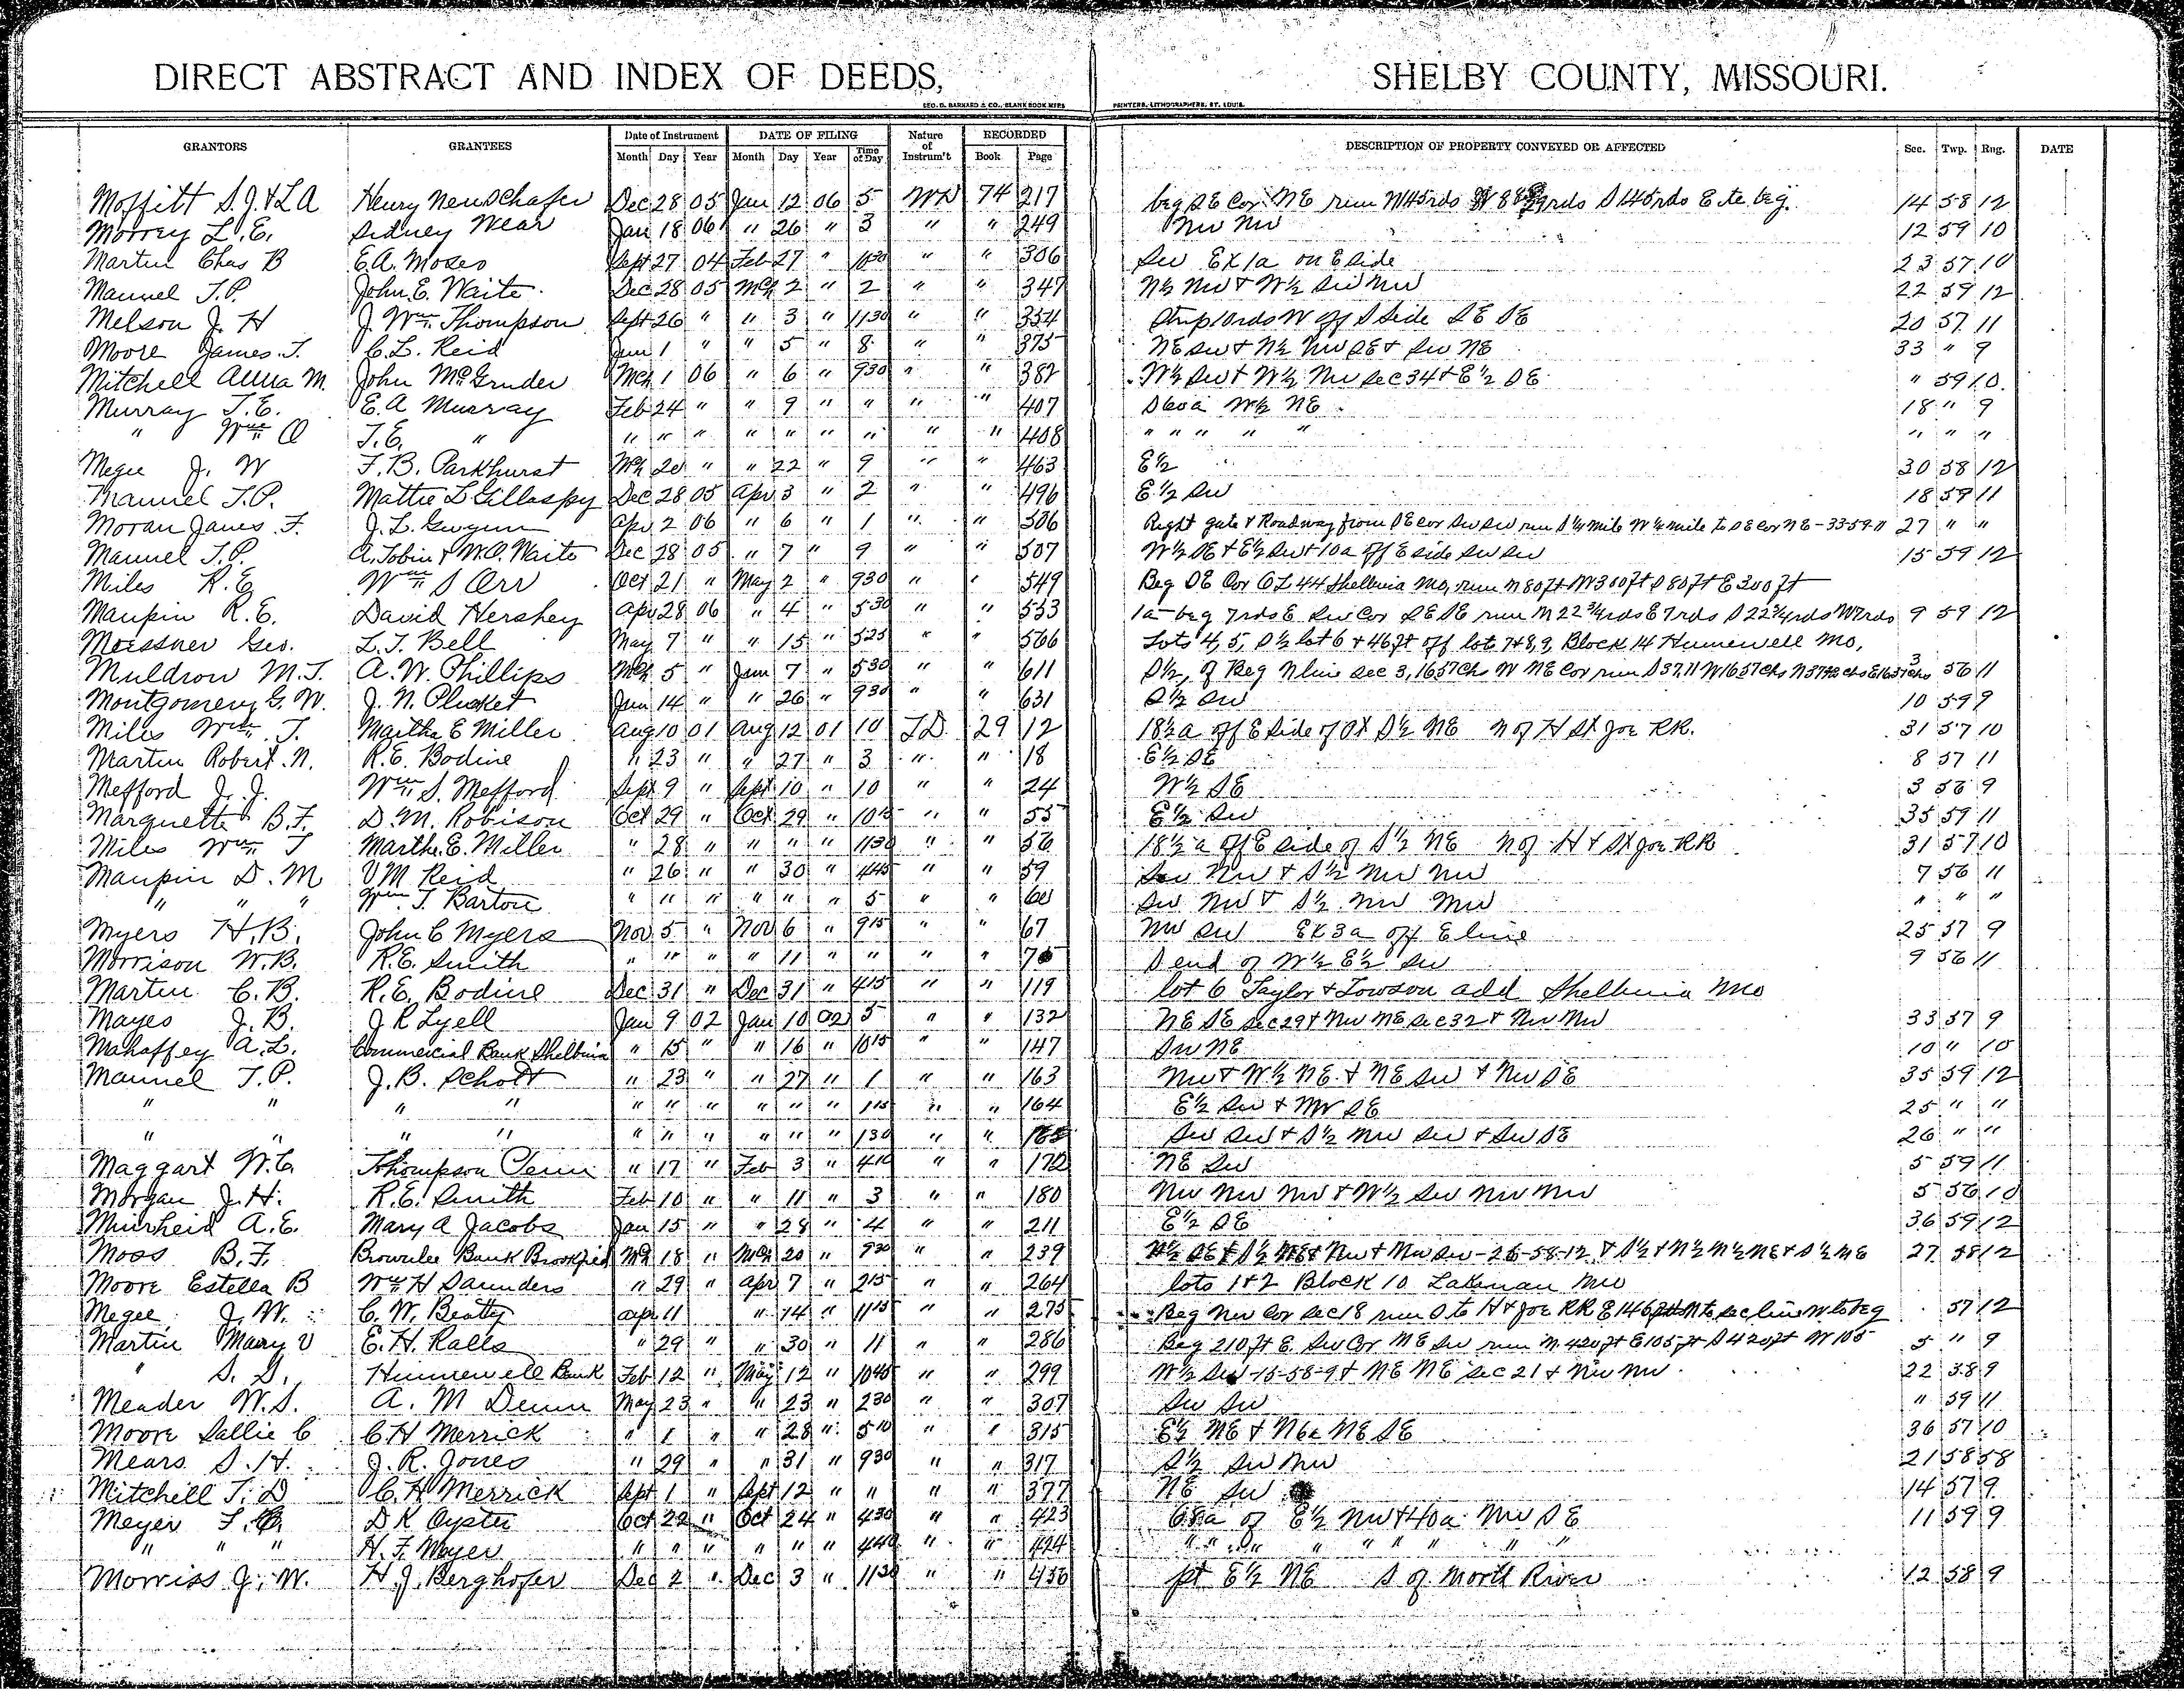 DIRECT ABSTRACT AND INDEX OF DEEDS, SHELBY COUNTY, MISSOURI.
GEO. D. BARNARD & CO., BLANK BOOK MFRS PRINTERS, LITHOGRAPHERS, ST. LOUIS.
GRANTORS GRANTEES Date of Instrument DATE OF FILING Nature of Instrum't RECORDED DESCRIPTION OF PROPERTY CONVEYED OR AFFECTED Sec. Twp. Rng. DATE
Month Day Year Month Day Year Time of Day Book Page
Moffitt S.J. & L A Henry Neuschafer Dec 28 05 Jan 12 06 5 WD 74 217 beg SE Cor NE run N 145 rds W rds S 145 rds E to beg. 14 58 12
Morrey L.E. Sidney Wear Jan 18 06 " 26 " 3 " " 249 NW NW 12 59 10
Martin Chas B E.A. Moses Sept 27 04 Feb 27 " 10 30 " " 306 SW EX 1a on E side 23 57 10
Manuel T.P. John E. Waite Dec 28 05 Mch 2 " 2 " " 347 N½ NW & W½ SW NW 22 59 12
Melson J. H J. Wm. Thompson Sept 26 " " 3 " 11 30 " " 354 Strip 10 rds W off S Side SE SE 20 57 11
Moore James T. C.L. Reid Jan 1 " " 5 " 8 " " 375 NE SW & N½ NW SE & SW NE 33 " 9
Mitchell Anna M. John McGruder Mch 1 06 " 6 " 9 30 " " 382 W½ SW & W½ NW Sec 34 & E½ SE " 59 10
Murray T.E. E.A Murray Feb 24 " " 9 " " " " 407 S 60a W½ NE 18 " 9
" Wm O T.E. " " " " " " " " " " 408 " " " " " " " "
Megee J. W F.B. Parkhurst Mch 20 " " 22 " 9 " " 463 E½ 30 58 12
Manuel T.P. Mattie L Gillaspy Dec 28 05 Apr 3 " 2 " " 496 E½ SW 18 59 11
Moran James F. J.L. Gwynn Apr 2 06 " 6 " 1 " " 506 Right gate & Roadway from SE cor SW SW run S ¼ mile W ¼ mile to SE Cor NE-33-59-11 27 " "
Manuel T.P. A. Tobin & W.O. Waite Dec 28 05 " 7 " 9 " " 507 W½ SE & E½ SW & 10a off E side SW SW 15 59 12
Miles R.E Wm S Orr Oct 21 " May 2 " 9 30 " " 549 Beg SE Cor OL 44 Shelbina Mo, run N 80 ft W 300 ft S 80 ft E 300 ft
Maupin R.E. David Hershey Apr 28 06 " 4 " 5 30 " " 553 1a- beg 7 rds E SW Cor SE SE run N 22¾ rds E 7 rds S 22¾ rds W 7 rds 9 59 12
Moessner Geo. L.T. Bell May 7 " " 15 " 5 25 " " 566 Lots 4, 5, S½ lot 6 & 46 ft off lot 7 & 8, 9, Block 14 Hunnewell Mo,
Muldrow M.T. A.W. Phillips Mch 5 " Jun 7 " 5 30 " " 611 S½, of Beg N line Sec 3, 16 57 Chs W NE Cor run S 37.11 W 16 57 Chs N chs E 16 57 chs 3 56 11
Montgomery G.W. J.N. Plucket Jun 14 " " 26 " 9 30 " " 631 S½ SW 10 59 9
Miles Wm. T. Martha E Miller Aug 10 01 Aug 12 01 10 TD 29 12 18½ a off E Side of S½ NE N of H St Joe RR. 31 57 10
Martin Robert N. R.E. Bodine " 23 " " 27 " 3 " " 18 E½ SE 8 57 11
Mefford J.J. Wm S. Mefford Sept 9 " Sept 10 " 10 " " 24 W½ SE 3 56 9
Marquette B.F. D.M. Robison Oct 29 " Oct 29 " " " 55 E½ SW 35 59 11
Miles Wm T Martha E. Miller " 28 " " " " 11 30 " " 56 18½ a off E side of S½ NE N of H & St Joe RR 31 57 10
Maupin D. M V M Reid " 26 " " 30 " 4 45 " " 59 SW NW & S½ NW NW 7 56 11
" " " Wm T. Barton " " " " " " 5 " " 60 SW NW & S½ NW NW " " "
Myers H.B. John C Myers Nov 5 " Nov 6 " 9 15 " " 67 NW SW EX 3a off E line 25 57 9
Morrison W.B. R.E. Smith " " " " 11 " " " " S end of W½ E½ SW 9 56 11
Martin C.B. R.E. Bodine Dec 31 " Dec 31 " 4 15 " " 119 lot 6 Taylor & Towson add Shelbina Mo
Mayes J.B. J R Lyell Jan 9 02 Jan 10 02 5 " " 132 NE SE Sec 29 & NW NE Sec 32 & NW NW 33 57 9
Mahaffey A.L. Commercial Bank Shelbina " 15 " " 16 " 10 15 " " 147 SW NE 10 " 10
Manuel T.P. J.B. Schott " 23 " " 27 " 1 " " 163 NW & W½ NE & NE SW & NW SE 35 59 12
" " " " " " " " " " 1 15 " " 164 E½ SW & NW SE 25 " "
" " " " " " " " " " 1 30 " " 165 SW SW & S½ NW SW & SW SE 26 " "
Maggart W.C. Thompson Penn " 17 " Feb 3 " 4 10 " " 172 NE SW 5 59 11
Morgan J.H. R.E. Smith Feb 10 " " 11 " 3 " " 180 NW NW NW & W½ SW NW NW 5 56 10
Muirheid A.E. Mary A Jacobs Jan 15 " " 28 " 4 " " 211 E½ SE 36 59 12
Moss B.F. Brownlee Bank Brookfied Mch 18 " Mch 20 " 9 30 " " 239 SE & S½ NE & NW & NW SW-26-58-12 & S½ & N½ N½ NE & S½ NE 27 58 12
Moore Estella B Wm H Saunders " 29 " Apr 7 " 2 15 " " 264 lots 1 & 2 Block 10 Lakenan Mo
Megee J.W. C.W. Beatty Apr 11 " 14 " 11 15 " " 275 Beg NW Cor Sec 18 run S to H & Joe RR E 146 N to sec line W to beg 57 12
Martin Mary V E.H. Ralls " 29 " " 30 " 11 " " 286 Beg 210 ft E. SW Cor NE SW run N 420 ft E 105 ft S 420 ft W 105 5 " 9
" S.S. Hunnewell Bank Feb 12 " May 12 " 10 45 " " 299 W½ SW-15-58-9 & NE NE Sec 21 & NW NW 22 58 9
Meader W.S. A. M Dunn May 23 " " 23 " 2 30 " " 307 SW SW " 59 11
Moore Sallie C C.H Merrick " 1 " " 28 " 5 10 " " 315 E½ NE & N 6a NE SE 36 57 10
Mears S.H. J.R. Jones " 29 " " 31 " 9 30 " " 317 S½ SW NW 21 58 58
Mitchell T.D C.H Merrick Sept 1 " Sept 12 " " " " 377 NE SW 14 57 9
Meyer F. D K Oyster Oct 22 " Oct 24 " 4 30 " " 423 68a of E½ NW & 40a NW SE 11 59 9
" " " H.F. Meyer " " " " " " 4 40 " " 424 " " " " " " " " "
Morriss J.W. H.J. Berghofer Dec 2 " Dec 3 " 11 30 " " 456 pt E½ NE S of North River 12 58 9